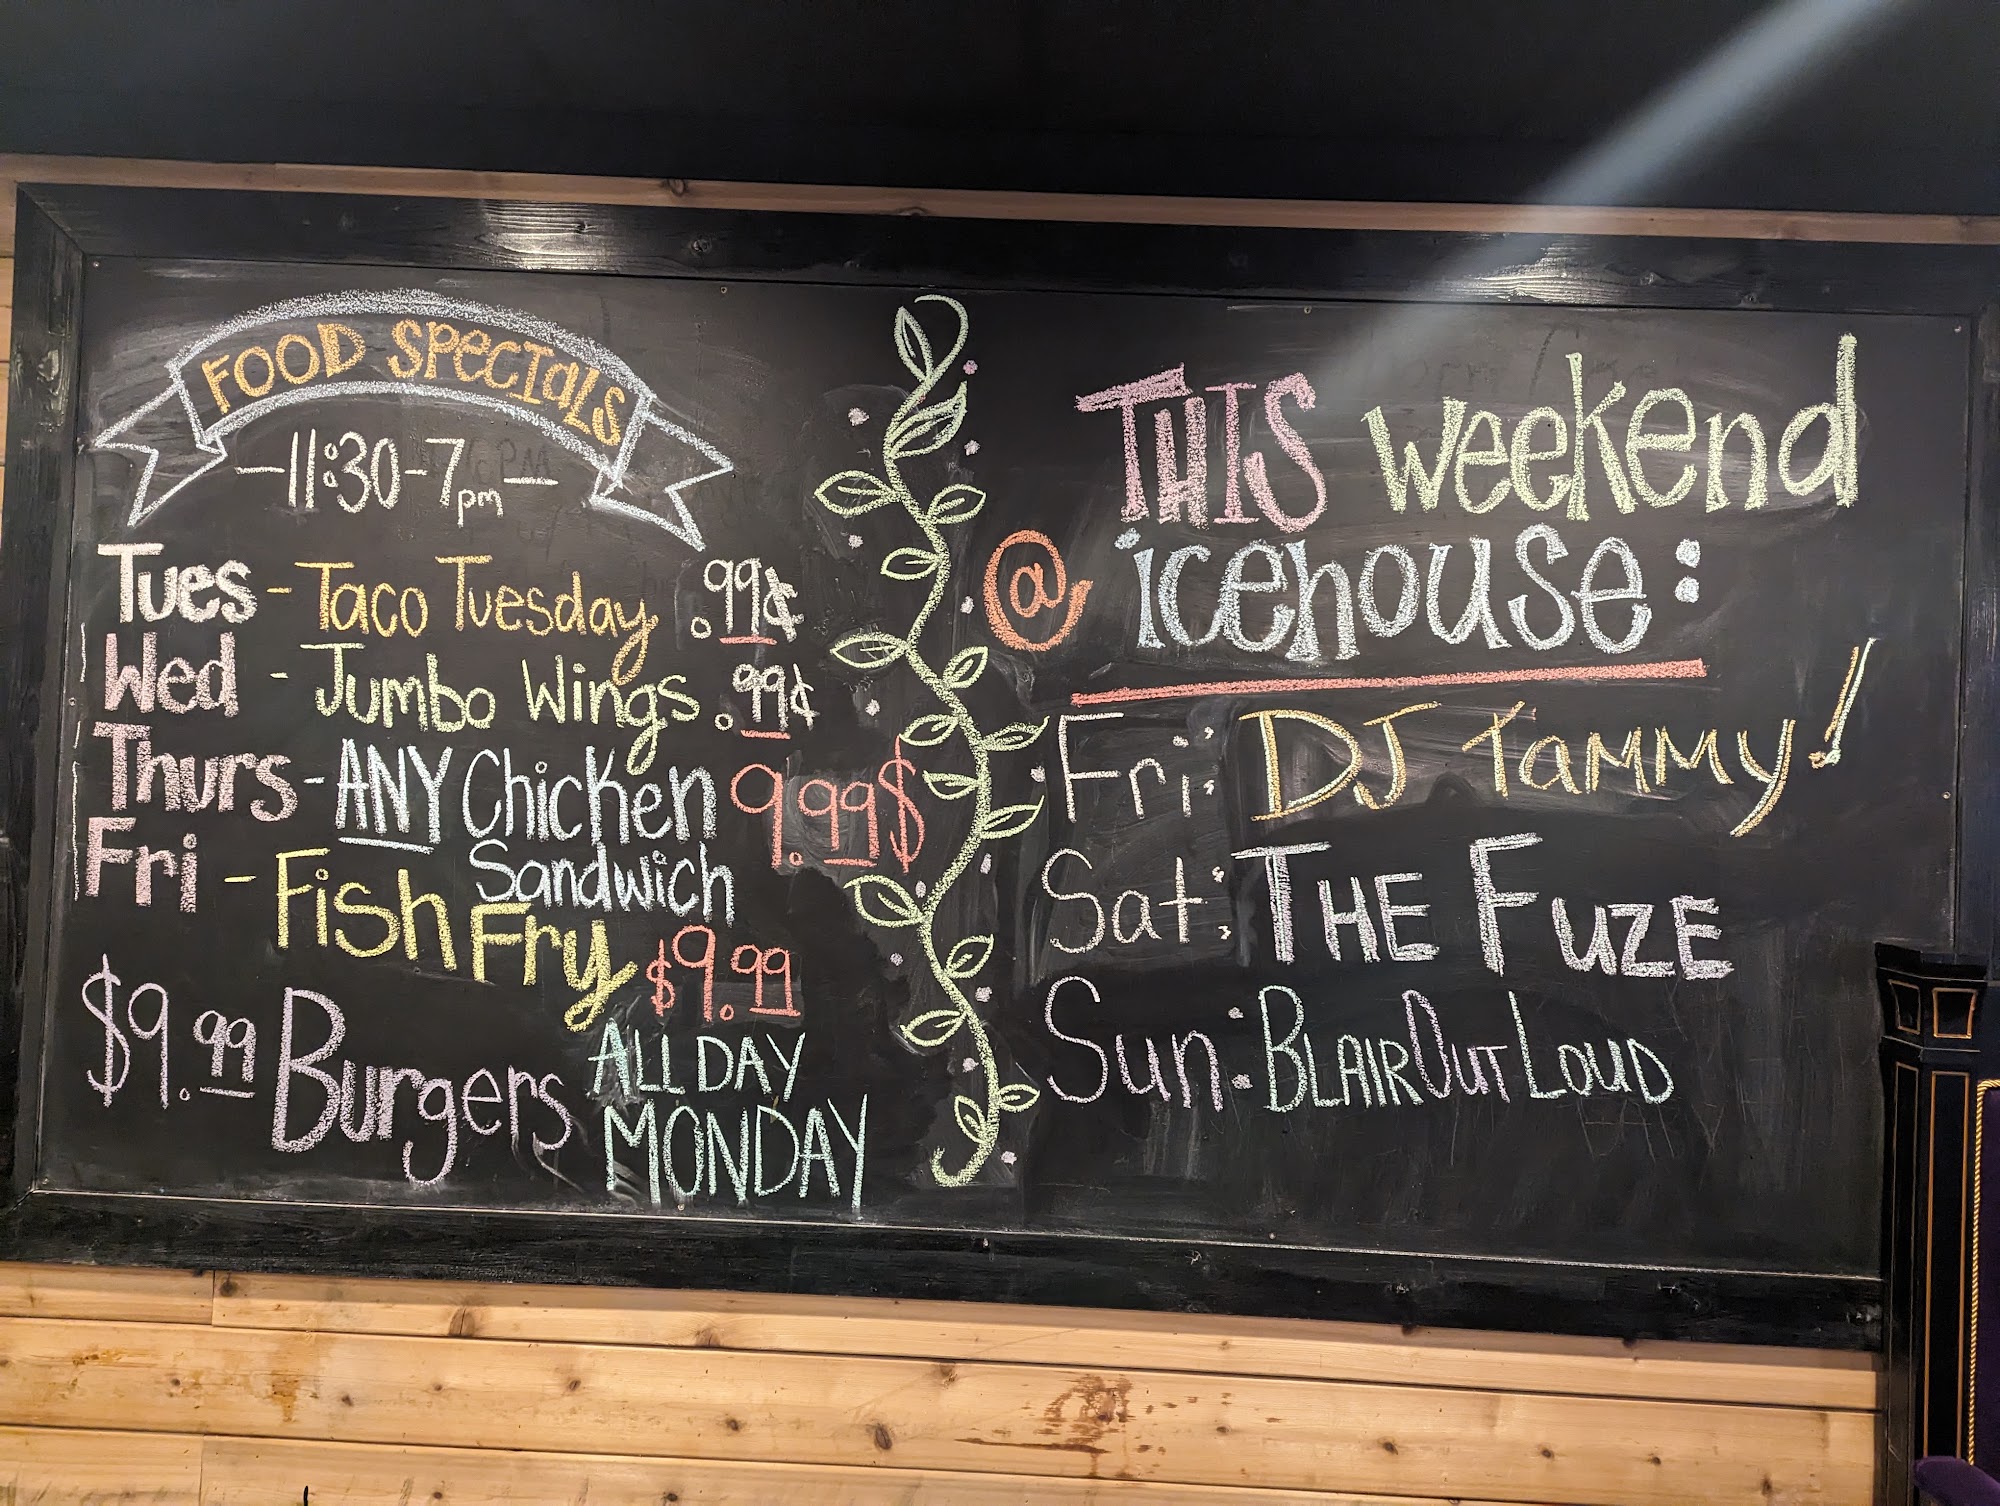 FOOD SPECIALS
-11:30-7pm-
Tues - Taco Tuesday .99¢
Wed - Jumbo Wings .99¢
Thurs - ANY Chicken Sandwich 9.99$
Fri - Fish Fry $9.99
$9.99 Burgers ALL DAY MONDAY
THIS weekend
@ icehouse:
Fri: DJ Tammy!
Sat: THE FUZE
Sun: BLAIR OUT LOUD